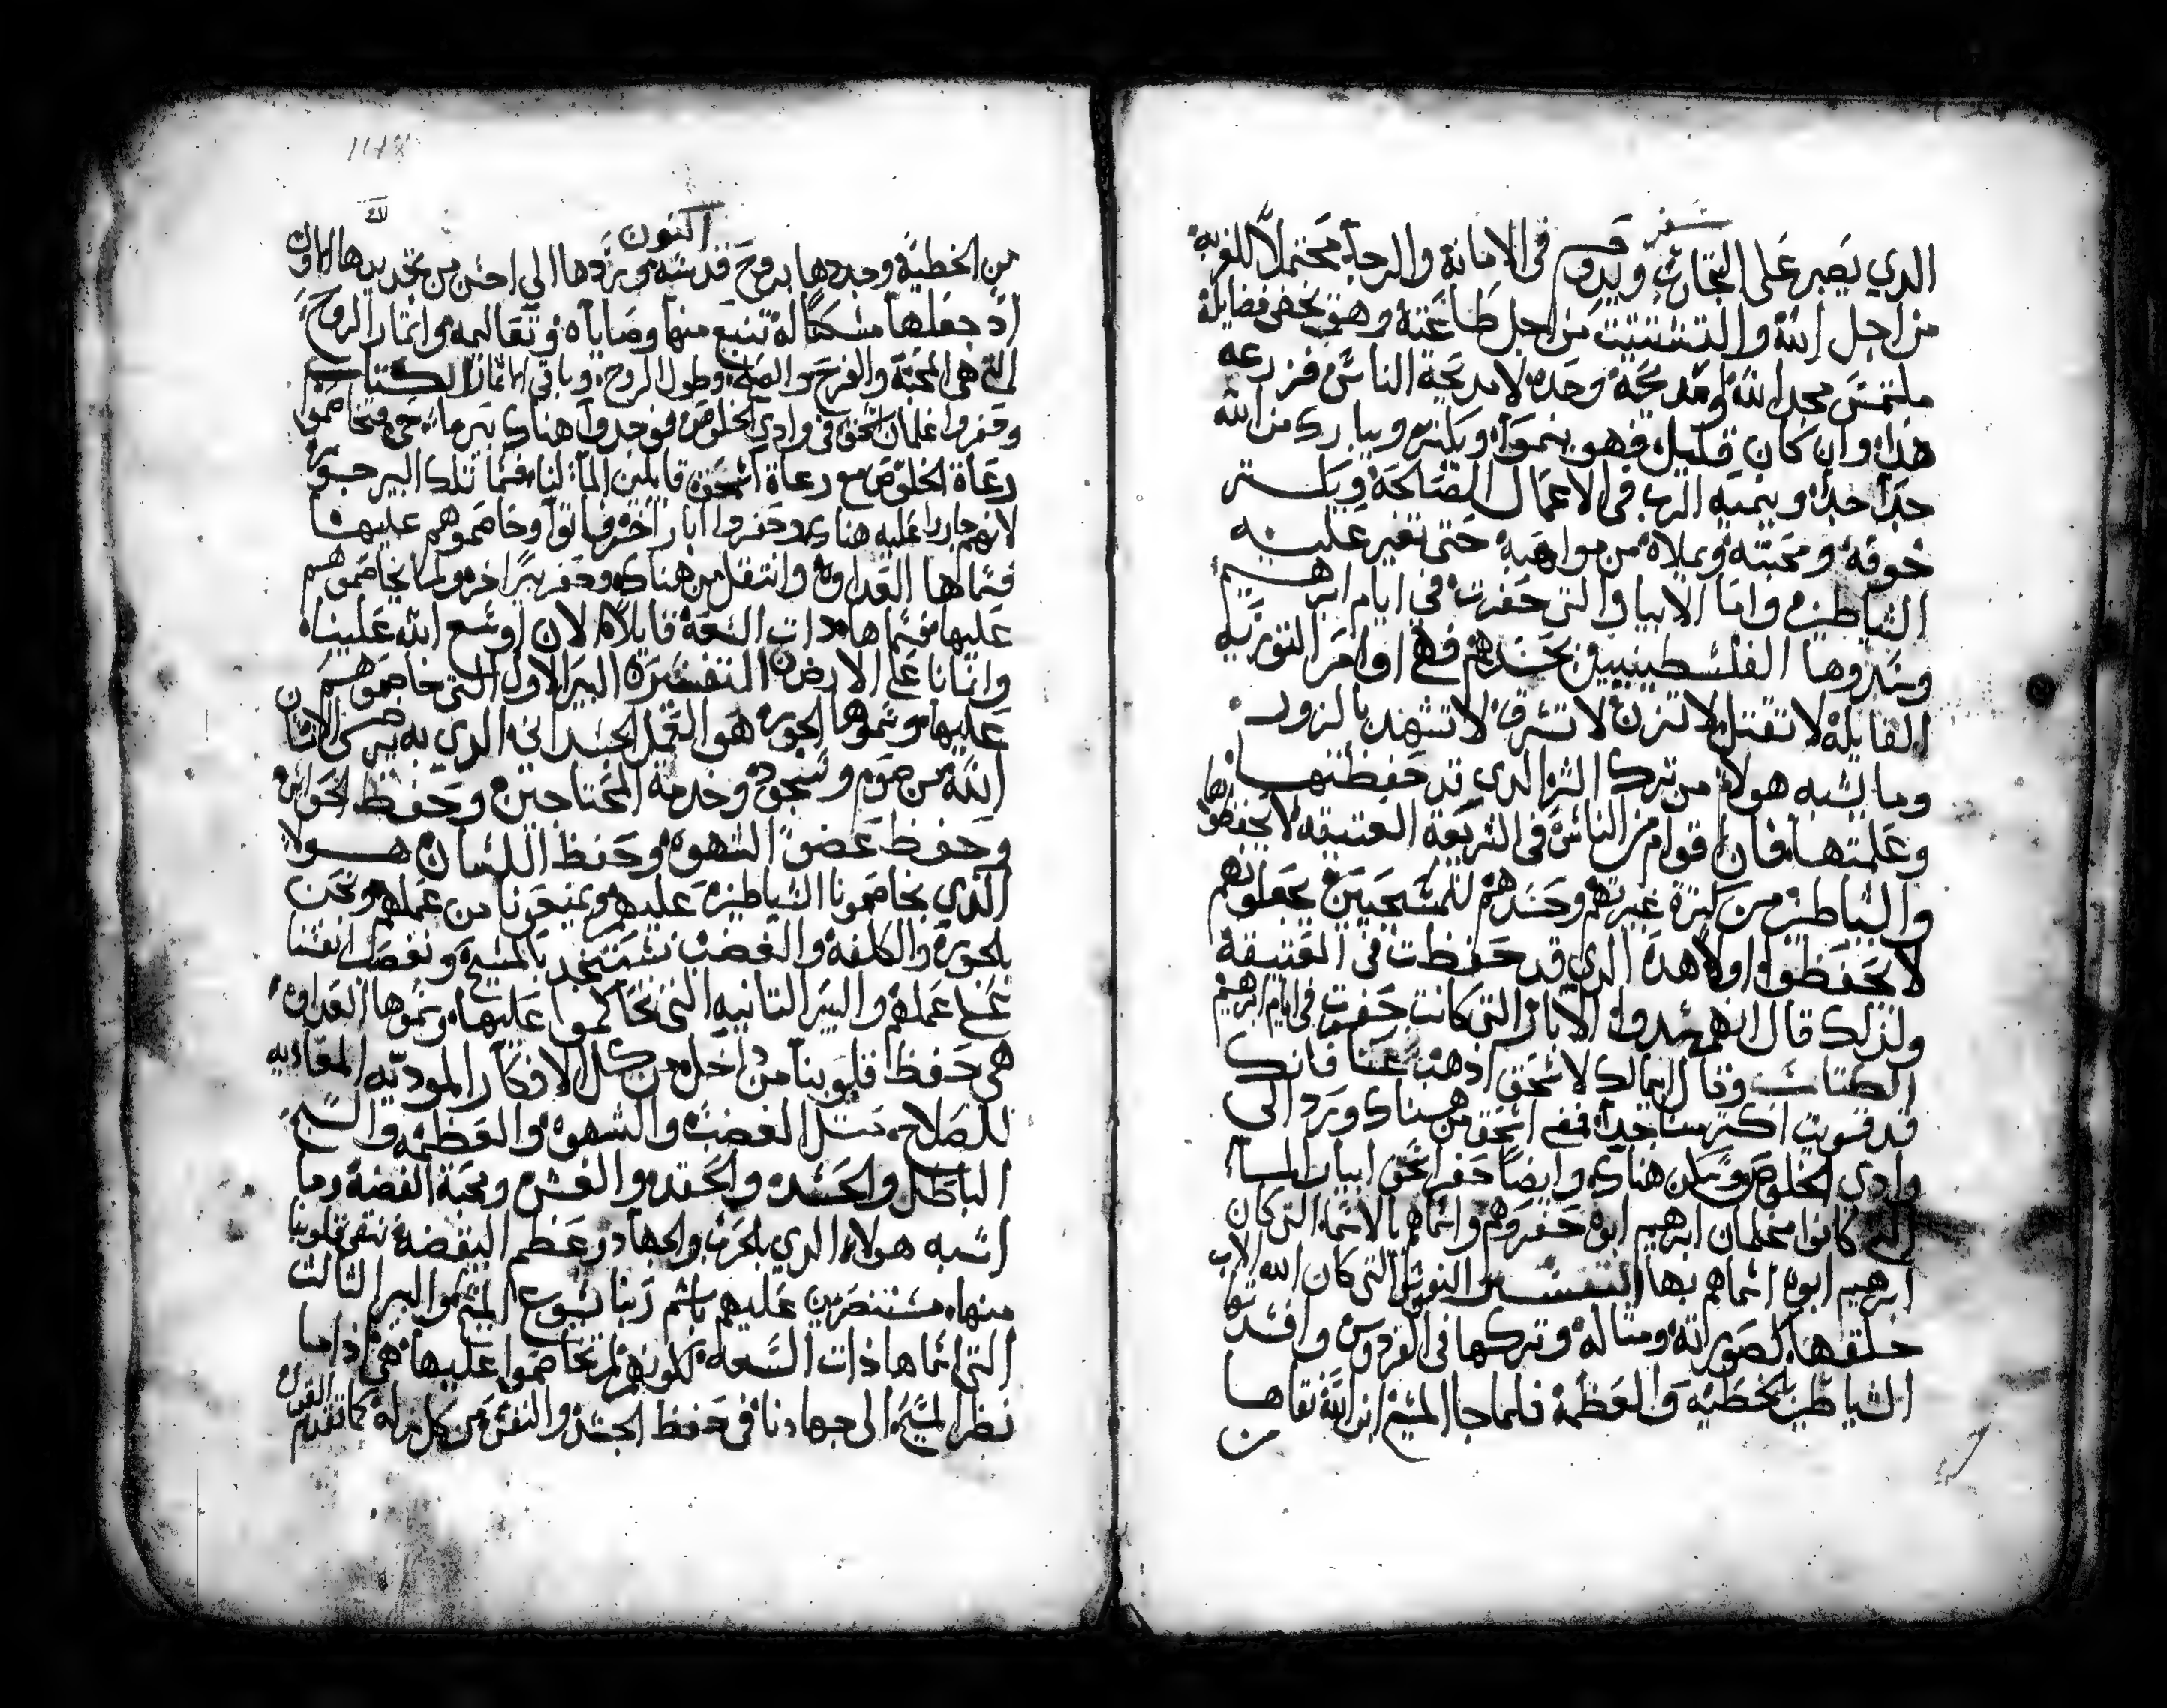 سفر
الدي يصبر على التجارب ويدوم فى الامانة والرجا محتملاً للغربه
من اجل الله والتشتيت من اجل طاعته وهو يخفى فضايله
ملتمس مجد الله ومديحة وحده لا مديحة الناس فزرعه
هدا وان كان قليل فهو ينموا ويكتر ويبارك من الله
جداً جداً وينميه الرب فى الاعمال الصالحة ويكتر
خوفه ومحبته ويملاه من مواهبه حتى تغير عليه
الشياطين واما الابيار التى حفرت في ايام ابرهيم
وسدوها الفلسطينيين بحسدهم فهى اوامر التوريه
القايلة لا تقتل لا تزن لا تسرق لا تشهد بالزور
وما يشبه هولا من ترك الشر الدي قد حفظتها
وعلمتها فان اقوام من الناس فى الشريعة العتيقه لا يحفظونها
والشياطين من كترة غيرتهم وحسدهم للمسيحيين يجعلونهم
لا يحفظوا اولا هده الدي قد حفظت فى العتيقة
ولذلك قال انهم سدوا الابار التى كانت حفرت فى ايام ابرهيم
الكتاب وقال ابمالك لاسحق اذهب عنا فانك
قد قويت اكتر منا جداً فمضى اسحق من هناك ورد الى
وادي الخلوص وسكن هناك وايضاً حفر اسحق ابيار الماء
التى كانوا غلمان ابرهيم ابوه حفروهم واسماهم بالاسماء التى كان
ابرهيم ابوه اسماهم بها التفسير النفوس التى كان الله الاب
خلقها كصورته ومتاله وتركها فى الفردوس وافسدتها
الشياطين بالخطيه والعظمة فلما جا المسيح ابن الله نقاها
من
التكوين
من الخطية وجددها بروح قدسه وردها الي احسن من تجديدها الاول
اد جعلها مسكناً له تنبع منها وصاياه وتعاليمه واتمار الروح
التى هى المحبة والفرح والصلح وطول الروح وباقى الاتمار الكتاب
وحفروا غلمان اسحق فى وادي الخلوص فوجدوا هناك بير ماء حى فتخاصموا
رعاة الخلوص مع رعاة اسحق قايلين الماء لنا فسما تلك البير جور
لانهم جاروا عليه هناك وحفروا ابار اخره فاتوا وخاصموهم عليها
فسماها العداوه وانتقل من هناك وحفر بيراً اخره ولم يخاصموهم
عليها فسماها دات السعة قايلاً الان اوسع الله علينا
وانمانا على الارض التفسير البير الاول التى خاصموهم
عليها وسموها الجور هو العمل الجسداني الدي به يرضى الانسان
الله من صوم وسجود وخدمة المحتاجين وحفظ الحواس
وحفظ عضو الشهوه وحفظ اللسان هولا
الدي يخاصمونا الشياطين عليهم ويمنعونا من عملهم ونحن
بالجور والكلفة والغصب نستنجد بالمسيح ونغصب انفسنا
على عملهم والبير التانيه التى تحاكموا عليها وسموها العداوه
هى حفظ قلوبنا من داخل من كل الافكار الموديه المعاديه
للصلاح متل الغضب والشهوه والعظمه والسبح
الباطل والحسد والحقد والغش ومحبة الفضة وما
اشبه هولاء الدي بالحرب والجهاد وعظم البغضة تنقى قلوبنا
منها مستنصرين عليهم باسم ربنا يسوع المسيح والبير التالت
التى اسماها ذات السعه لكونهم لم تخاصموا عليها هى اذا ما
نظر المسيح الى جهادنا فى حفظ الجسد والنفس من كل زله كما تقدم القول